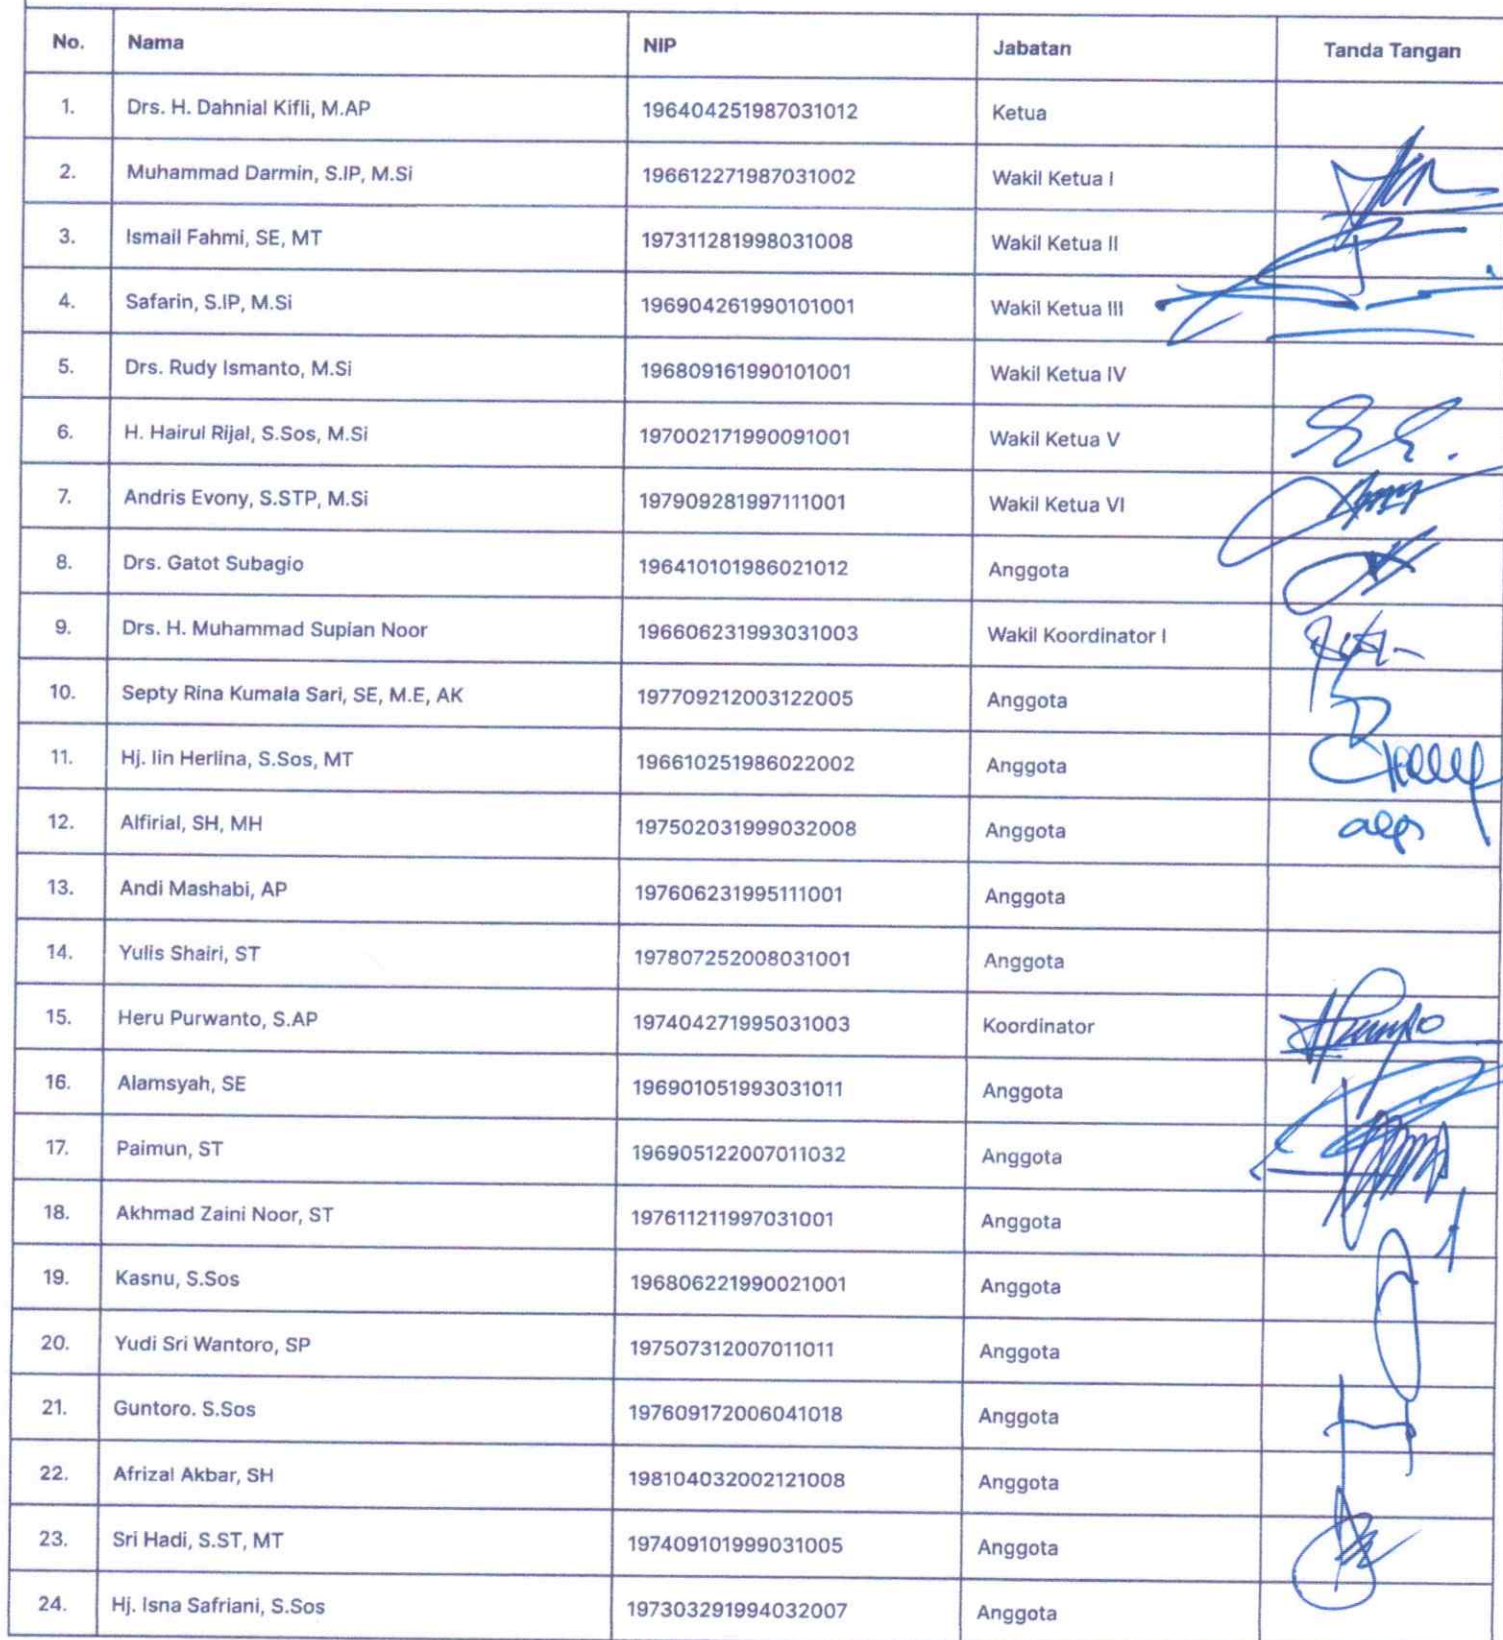 No. Nama NIP Jabatan Tanda Tangan
1. Drs. H. Dahnial Kifli, M.AP 196404251987031012 Ketua
2. Muhammad Darmin, S.IP, M.Si 196612271987031002 Wakil Ketua I
3. Ismail Fahmi, SE, MT 197311281998031008 Wakil Ketua II
4. Safarin, S.IP, M.Si 196904261990101001 Wakil Ketua III
5. Drs. Rudy Ismanto, M.Si 196809161990101001 Wakil Ketua IV
6. H. Hairul Rijal, S.Sos, M.Si 197002171990091001 Wakil Ketua V
7. Andris Evony, S.STP, M.Si 197909281997111001 Wakil Ketua VI
8. Drs. Gatot Subagio 196410101986021012 Anggota
9. Drs. H. Muhammad Supian Noor 196606231993031003 Wakil Koordinator I
10. Septy Rina Kumala Sari, SE, M.E, AK 197709212003122005 Anggota
11. Hj. Iin Herlina, S.Sos, MT 196610251986022002 Anggota
12. Alfirial, SH, MH 197502031999032008 Anggota
13. Andi Mashabi, AP 197606231995111001 Anggota
14. Yulis Shairi, ST 197807252008031001 Anggota
15. Heru Purwanto, S.AP 197404271995031003 Koordinator
16. Alamsyah, SE 196901051993031011 Anggota
17. Paimun, ST 196905122007011032 Anggota
18. Akhmad Zaini Noor, ST 197611211997031001 Anggota
19. Kasnu, S.Sos 196806221990021001 Anggota
20. Yudi Sri Wantoro, SP 197507312007011011 Anggota
21. Guntoro. S.Sos 197609172006041018 Anggota
22. Afrizal Akbar, SH 198104032002121008 Anggota
23. Sri Hadi, S.ST, MT 197409101999031005 Anggota
24. Hj. Isna Safriani, S.Sos 197303291994032007 Anggota